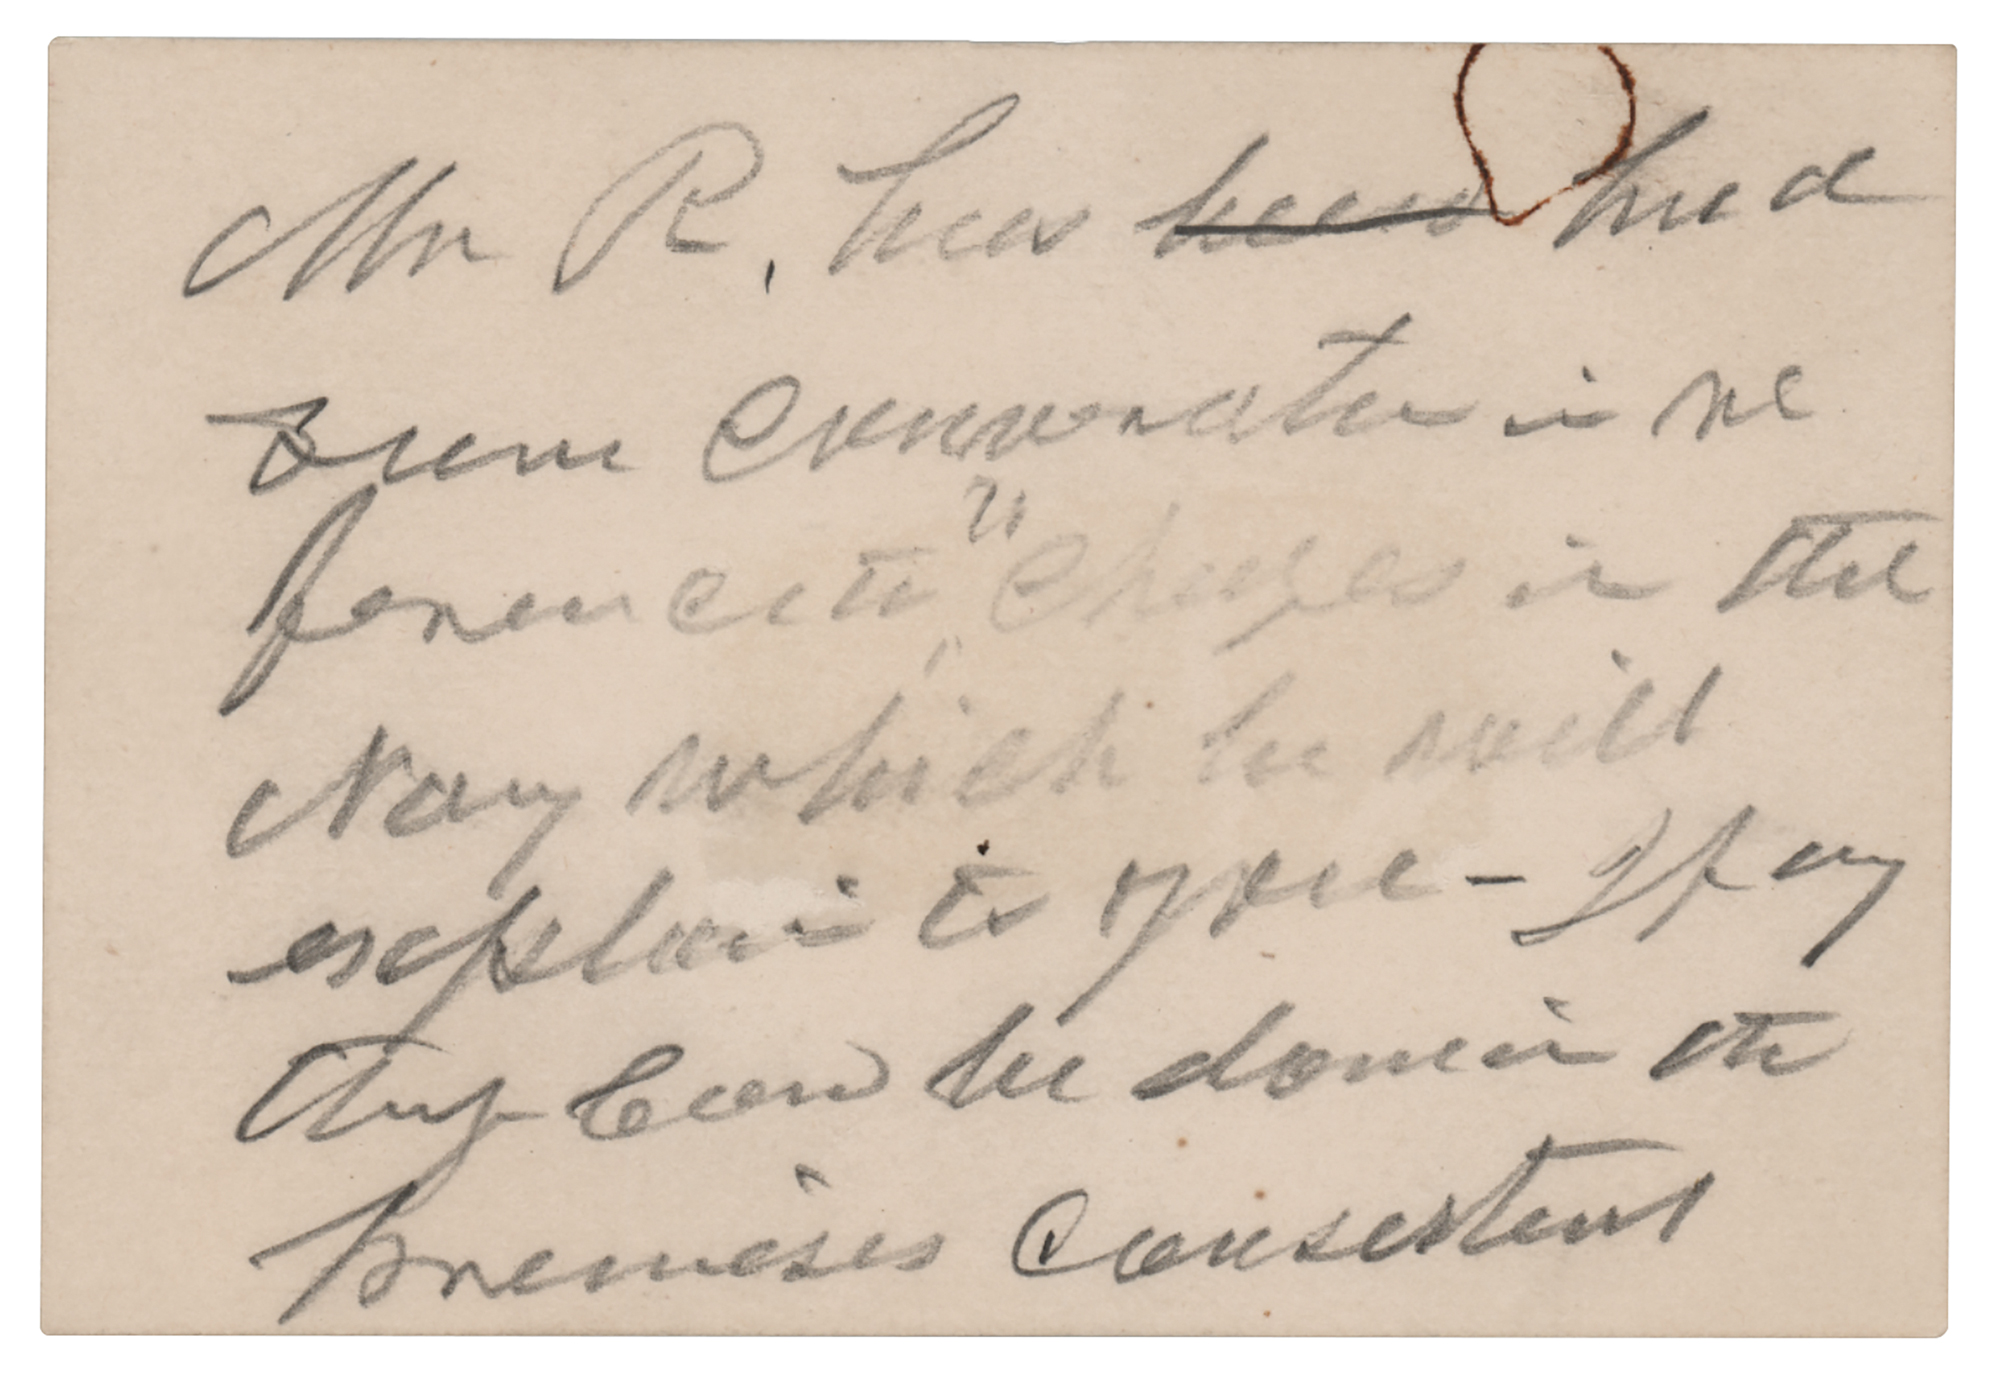 Mr R, has been had
some conversation in re
ference to "Charges in the
Navy which he will
explain to you - If any
thing can be done in the
premises consistent